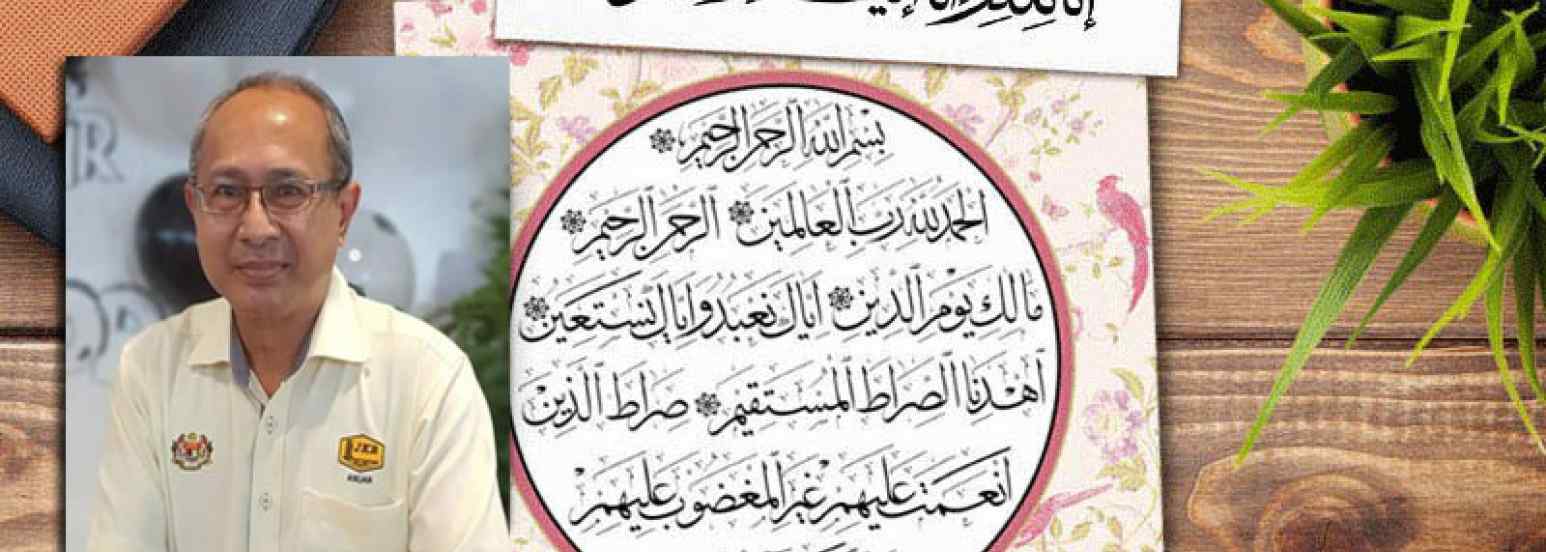 بِسْمِ اللهِ الرَّحْمٰنِ الرَّحِيْمِ
اَلْحَمْدُ لِلّٰهِ رَبِّ الْعَالَمِيْنَ ۞ الرَّحْمٰنِ الرَّحِيْمِ ۞
مَالِكِ يَوْمِ الدِّيْنِ ۞ اِيَّاكَ نَعْبُدُ وَاِيَّاكَ نَسْتَعِيْنُ ۞
اِهْدِنَا الصِّرَاطَ الْمُسْتَقِيْمَ ۞ صِرَاطَ الَّذِيْنَ
اَنْعَمْتَ عَلَيْهِمْ غَيْرِ الْمَغْضُوْبِ عَلَيْهِمْ
JKR